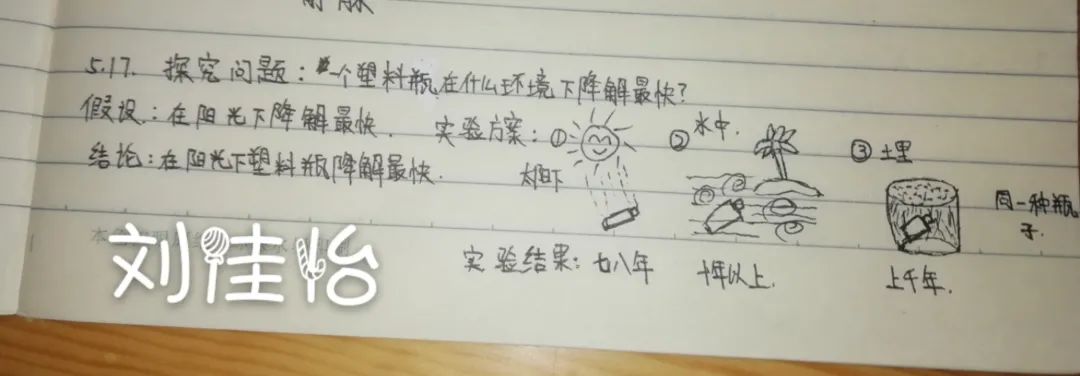 5.17. 探究问题：一个塑料瓶在什么环境下降解最快？
假设：在阳光下降解最快.
实验方案：① ② 水中. ③ 土里
结论：在阳光下塑料瓶降解最快.
太阳下
同一种瓶子.
实验结果：七八年 十年以上. 上千年.
刘佳怡